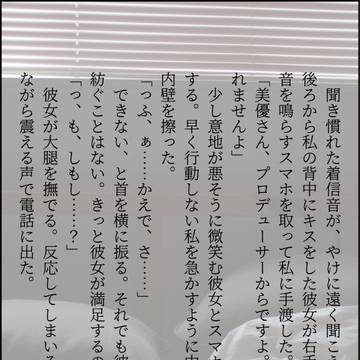 聞き慣れた着信音が、やけに遠く聞こ
後ろから私の背中にキスをした彼女が右手
音を鳴らすスマホを取って私に手渡した。
「美優さん、プロデューサーからですよ。
れませんよ」
少し意地が悪そうに微笑む彼女とスマ
する。早く行動しない私を急かすように中
内壁を擦った。
「っふ、ぁ……かえで、さ……」
できない、と首を横に振る。それでも彼
紡ぐことはない。きっと彼女が満足するの
「っ、も、しもし……？」
彼女が大腿を撫でる。反応してしまいそ
ながら震える声で電話に出た。